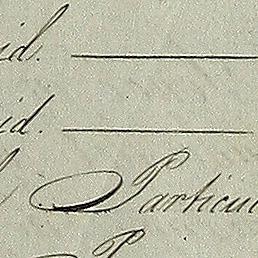 id.
id.
Particu
P